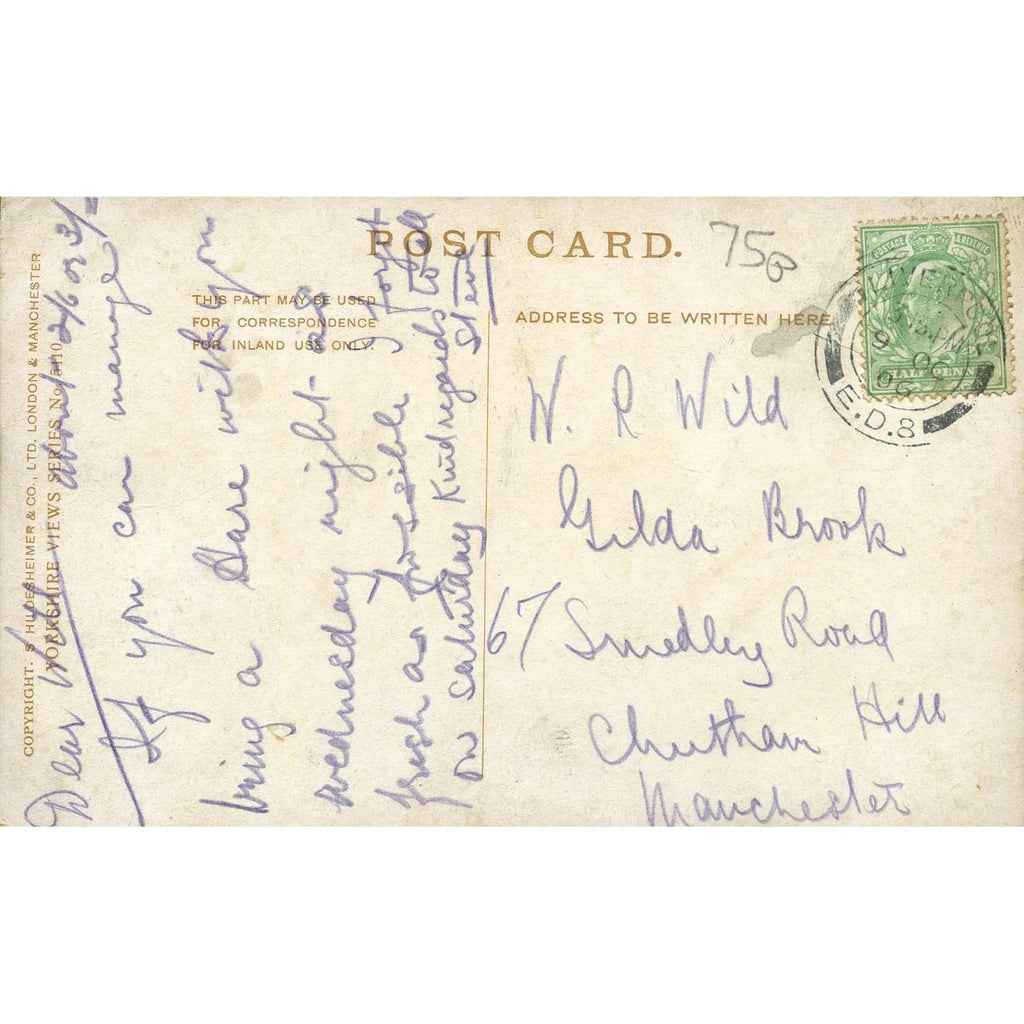 POST CARD.
75
THIS PART MAY BE USED
FOR CORRESPONDENCE
FOR INLAND USE ONLY.
ADDRESS TO BE WRITTEN HERE
COPYRIGHT. S. HILDESHEIMER & CO., LTD. LONDON & MANCHESTER
YORKSHIRE VIEWS SERIES No. 5110
POSTAGE & REVENUE
HALF PENNY
E.D.8
Dear about 2/6 or 3/-
If you can manage
Have with you
bring a
wednesday night - as
fresh as possible for
on saturday Kind regards to
W. R Wild
Gilda Brook
67/ Smedley Road
Cheetham Hill
Manchester